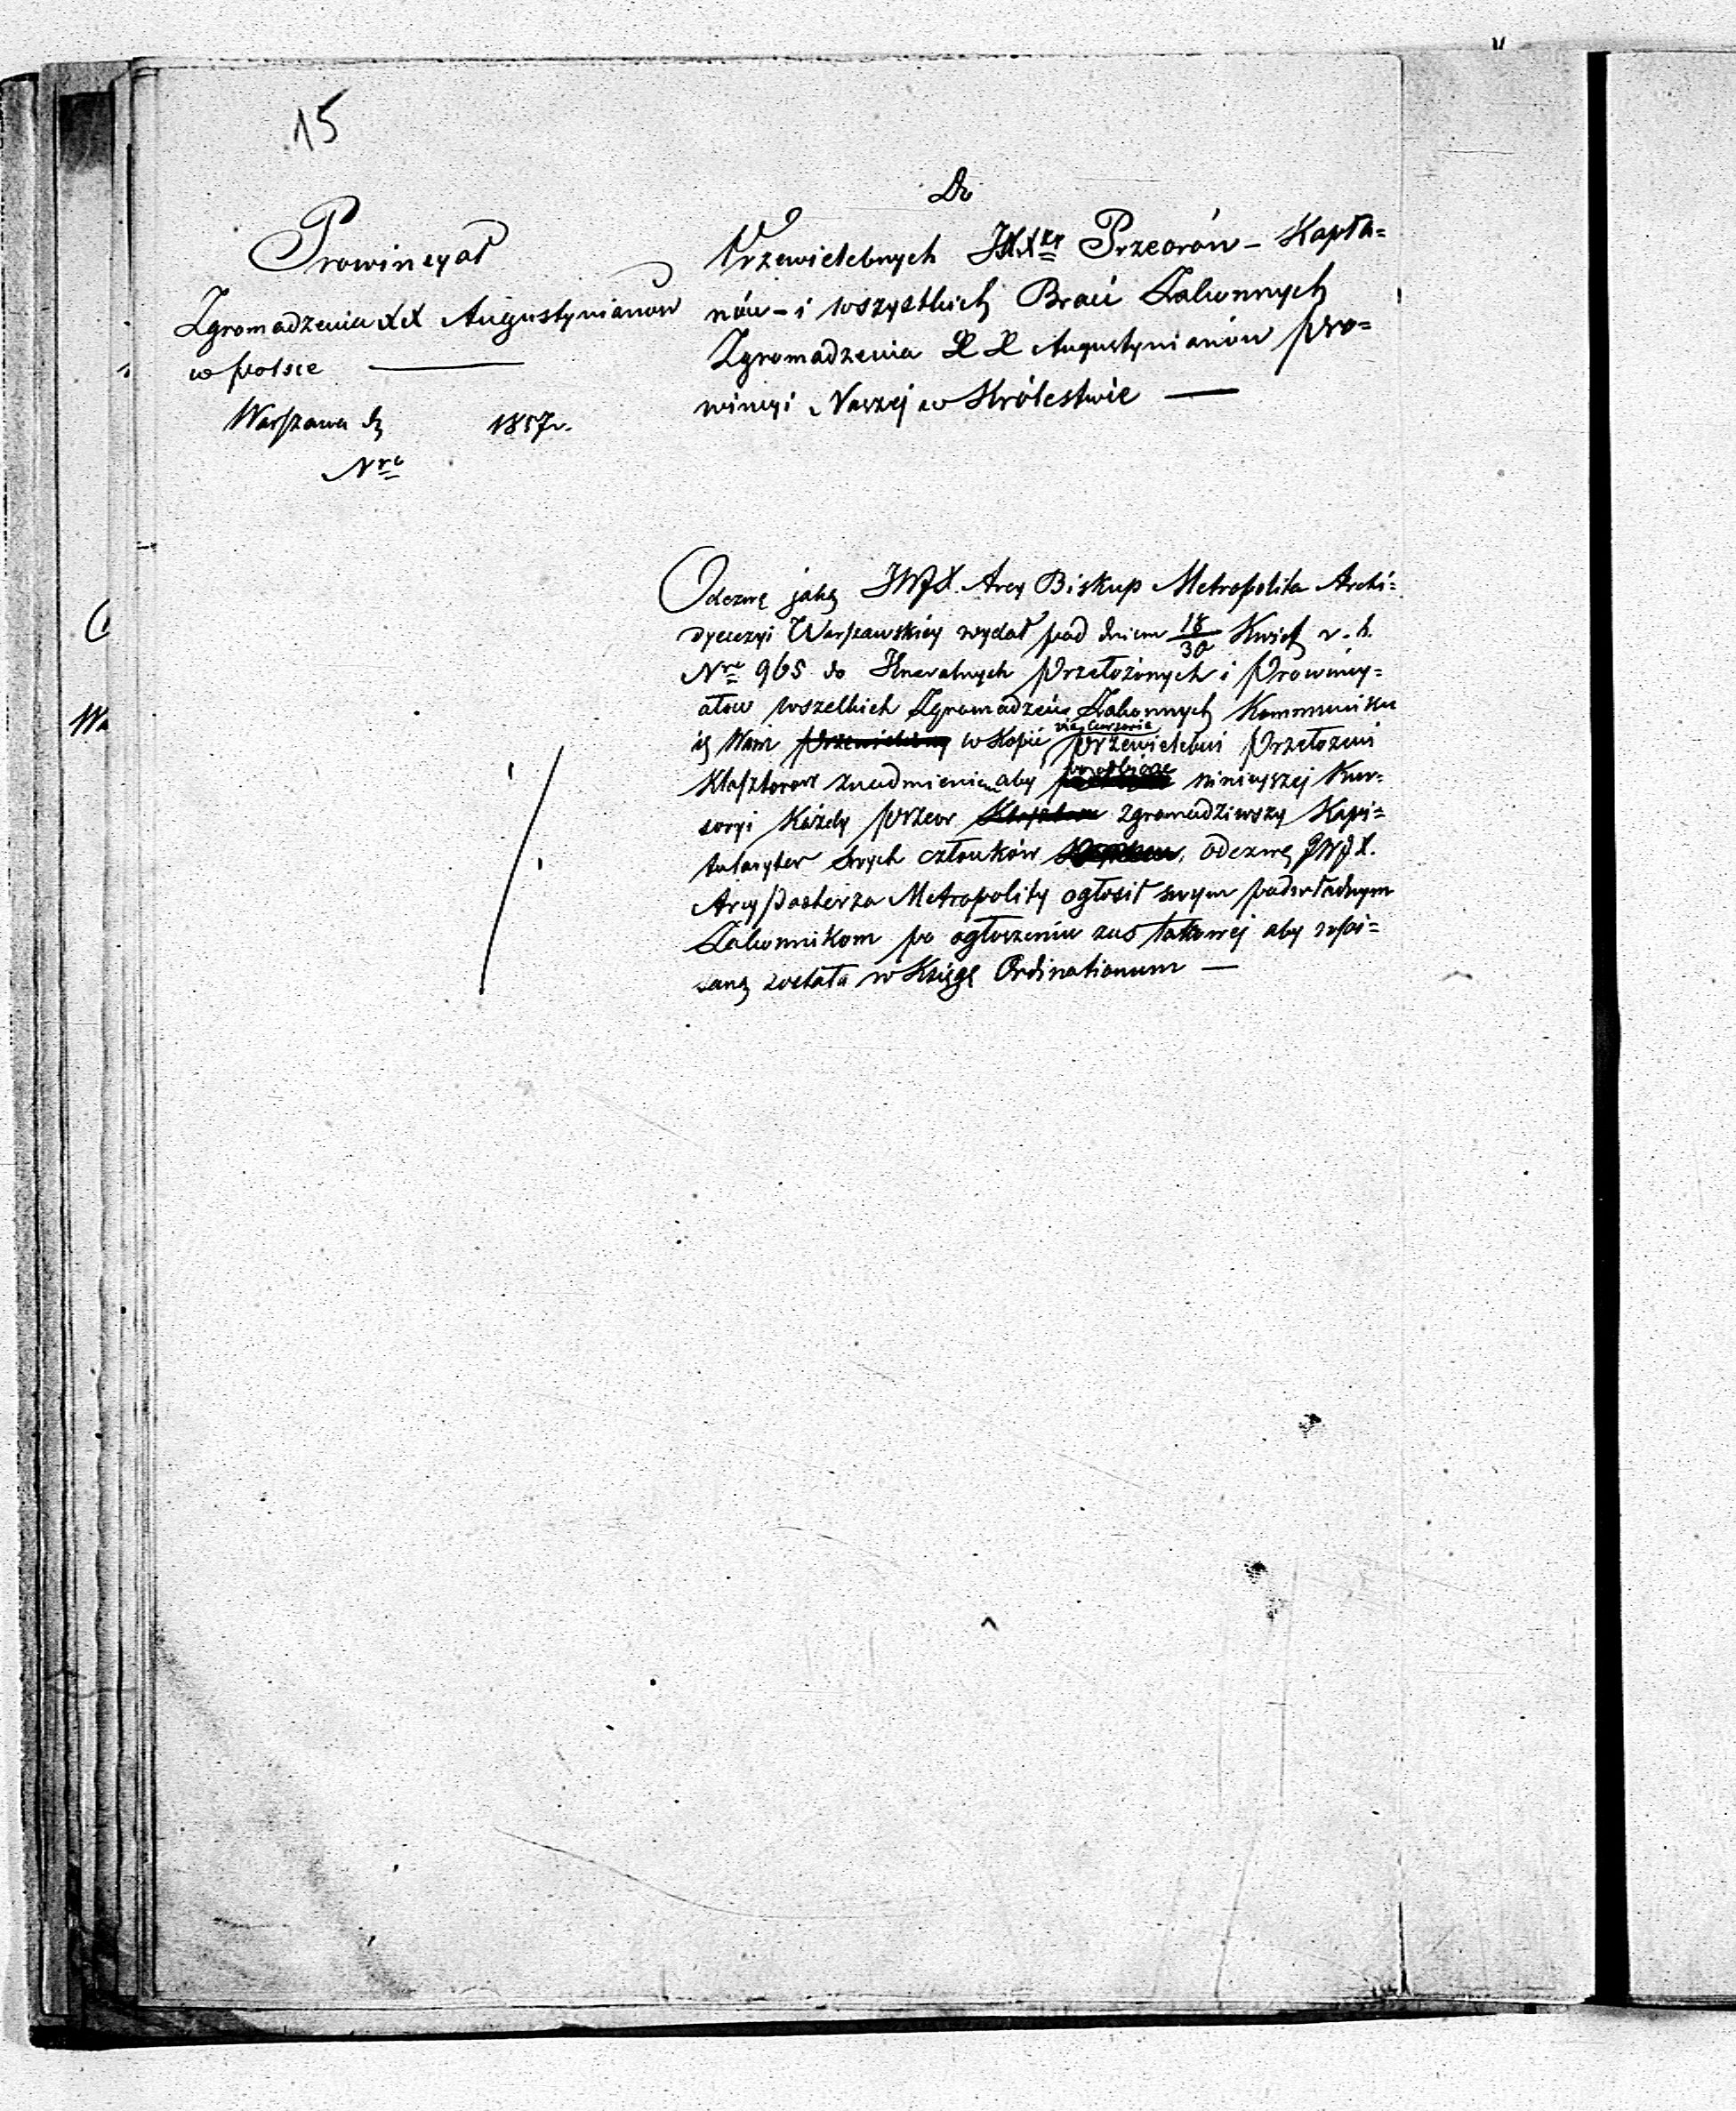 15
Prowincyał
Zgromadzenia XX Augustynianow
w Polsce
Warszawa d.
1857 r.
Nro
Do
Przewielebnych Przeorów - Kapła=
nów - i wszystkich Braci Zakonnych
Zgromadzenia XX Augustynianów Pro=
wincyi Naszej w Królestwie
Odezwę jaką JWJX. Arcy Biskup Metropolita Archi=
dyecezyi Warszawskiéy wydał pod dniem 18/30 Kwiet r. b.
Nro 965 do Jeneralnych Przełożonych i Prowincy=
ałow wszelkich Zgromadzeń Zakonnych Kommuniku
ię Wam w Kopii via Cursoria Przewielebni Przełożeni
Klasztorow znadmienieniem aby po odbiorze niniejszej Kur=
soryi każdy Przeor zgromadziwszy Kapi=
tularyter swych członków, odezwę JWJX.
Arcy Pasterza Metropolity ogłosił swym podwładnym
Zakonnikom po ogłoszeniu zaś takowéj aby wpi=
saną została w Księgę Ordinationum